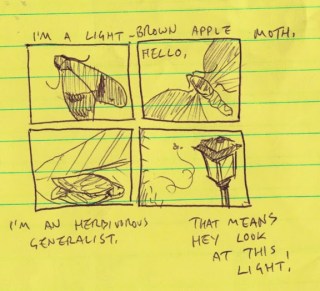 I'M A LIGHT-BROWN APPLE MOTH.
HELLO,
I'M AN HERBIVOROUS
GENERALIST.
THAT MEANS
HEY LOOK
AT THIS
LIGHT!